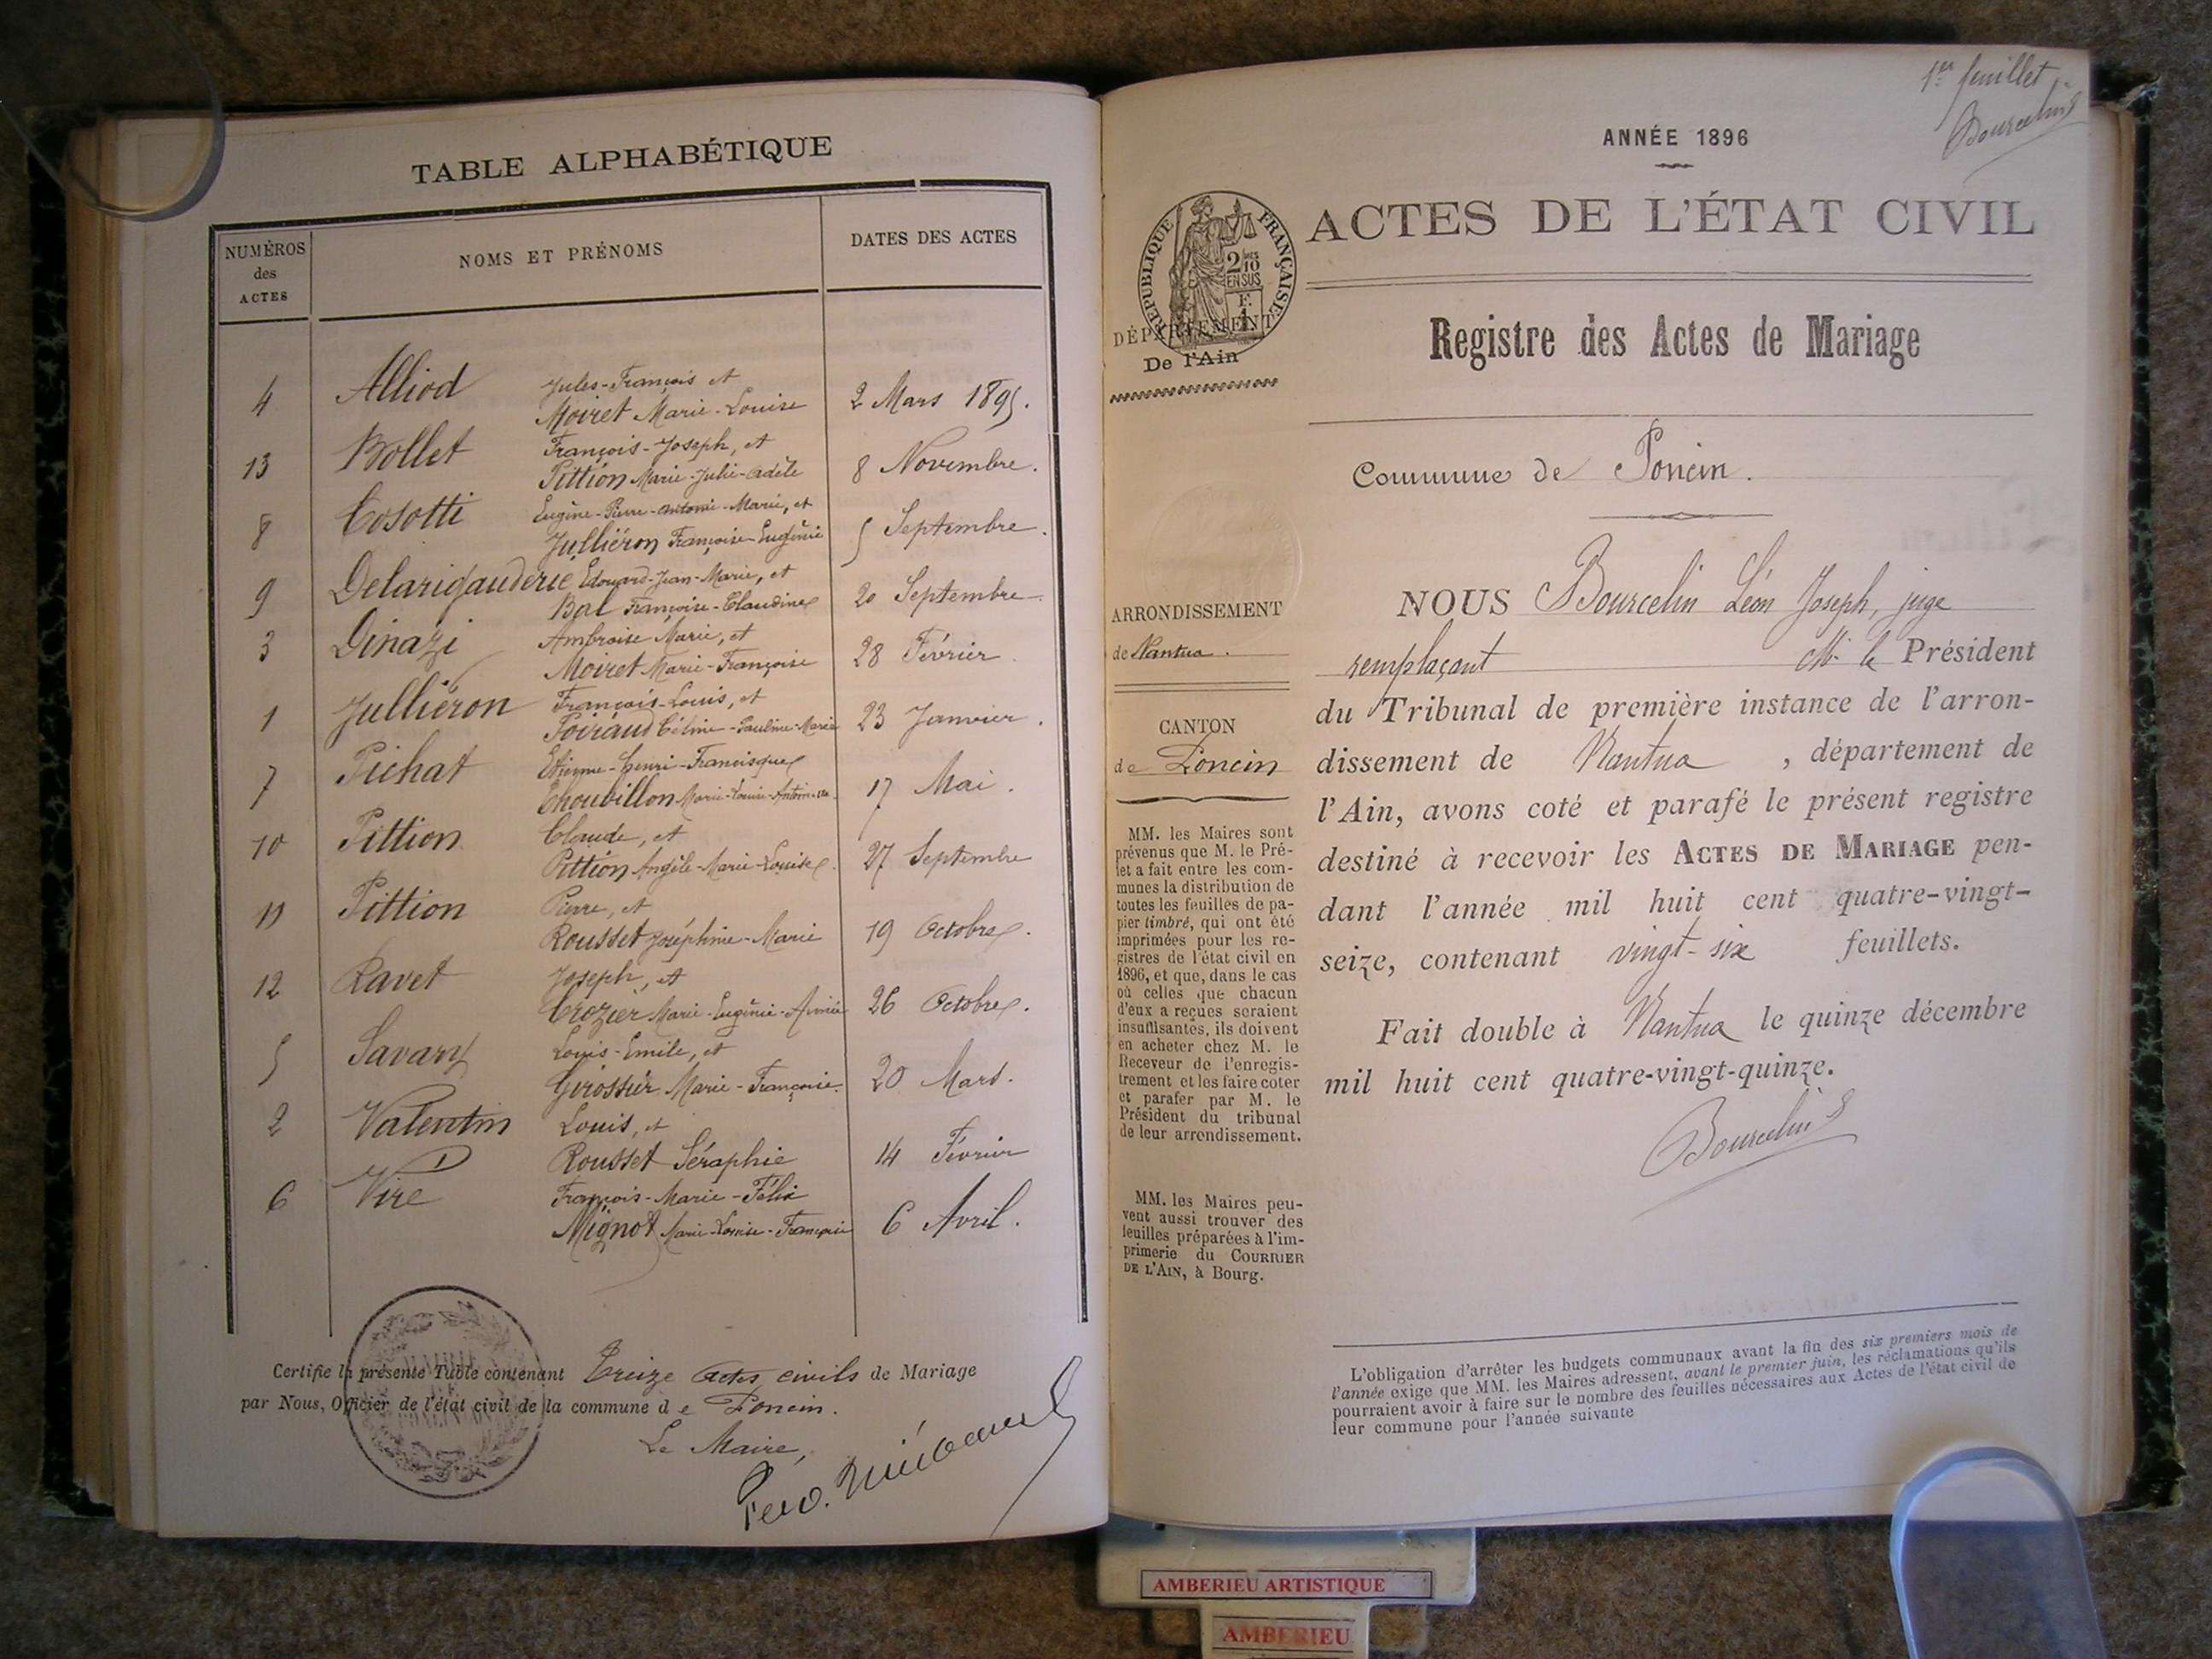 TABLE ALPHABÉTIQUE
NUMÉROS
des
ACTES
NOMS ET PRÉNOMS
DATES DES ACTES
4 Alliod Jules-François et
Moiret Marie-Louise 2 Mars 1895.
13 Bollet François-Joseph, et
Pittion Marie-Julie-Adèle 8 Novembre.
8 Cosotti Eugène-Pierre-Antoine-Marie, et
Julliéron Françoise-Eugénie 5 Septembre.
9 Delarigauderie Edouard-Jean-Marie, et
Bal Françoise-Claudine 20 Septembre
3 Dinazi Ambroise Marie, et
Moiret Marie-Françoise 28 Février.
1 Julliéron François-Louis, et
Poiraud Céline-Pauline-Marie 23 Janvier.
7 Pichat Etienne-Henri-Francisque
Chouvillon Marie-Louise 17 Mai.
10 Pittion Claude, et
Pittion Angèle-Marie-Louise 27 Septembre
11 Pittion Pierre, et
Rousset Joséphine-Marie 19 Octobre.
12 Ravet Joseph, et
Crozier Marie-Eugénie-Aimée 26 Octobre.
5 Savary Louis-Emile, et
Girossier Marie-Françoise 20 Mars.
2 Valentin Louis, et
Rousset Séraphie 14 Février
6 Vire François-Marie-Félix
Mignot Marie-Louise-Françoise 6 Avril.
Certifie la présente Table contenant Treize Actes civils de Mariage
par Nous, Officier de l'état civil de la commune de Poncin.
Le Maire,
1er feuillet
Bourcelin
ANNÉE 1896
ACTES DE L'ÉTAT CIVIL
RÉPUBLIQUE FRANÇAISE
2/10
EN SUS
F.
1
DÉPARTEMENT
De l'Ain
Registre des Actes de Mariage
Commune de Poncin.
ARRONDISSEMENT
de Nantua.
CANTON
de Poncin
MM. les Maires sont
prévenus que M. le Pré-
fet a fait entre les com-
munes la distribution de
toutes les feuilles de pa-
pier timbré, qui ont été
imprimées pour les re-
gistres de l'état civil en
1896, et que, dans le cas
où celles que chacun
d'eux a reçues seraient
insuffisantes, ils doivent
en acheter chez M. le
Receveur de l'enregis-
trement et les faire coter
et parafer par M. le
Président du tribunal
de leur arrondissement.
MM. les Maires peu-
vent aussi trouver des
feuilles préparées à l'im-
primerie du COURRIER
DE L'AIN, à Bourg.
NOUS Bourcelin Léon Joseph, juge
remplaçant M. le Président
du Tribunal de première instance de l'arron-
dissement de Nantua, département de
l'Ain, avons coté et parafé le présent registre
destiné à recevoir les ACTES DE MARIAGE pen-
dant l'année mil huit cent quatre-vingt-
seize, contenant vingt-six feuillets.
Fait double à Nantua le quinze décembre
mil huit cent quatre-vingt-quinze.
Bourcelin
L'obligation d'arrêter les budgets communaux avant la fin des six premiers mois de
l'année exige que MM. les Maires adressent, avant le premier juin, les réclamations qu'ils
pourraient avoir à faire sur le nombre des feuilles nécessaires aux Actes de l'état civil de
leur commune pour l'année suivante
AMBERIEU ARTISTIQUE
AMBERIEU